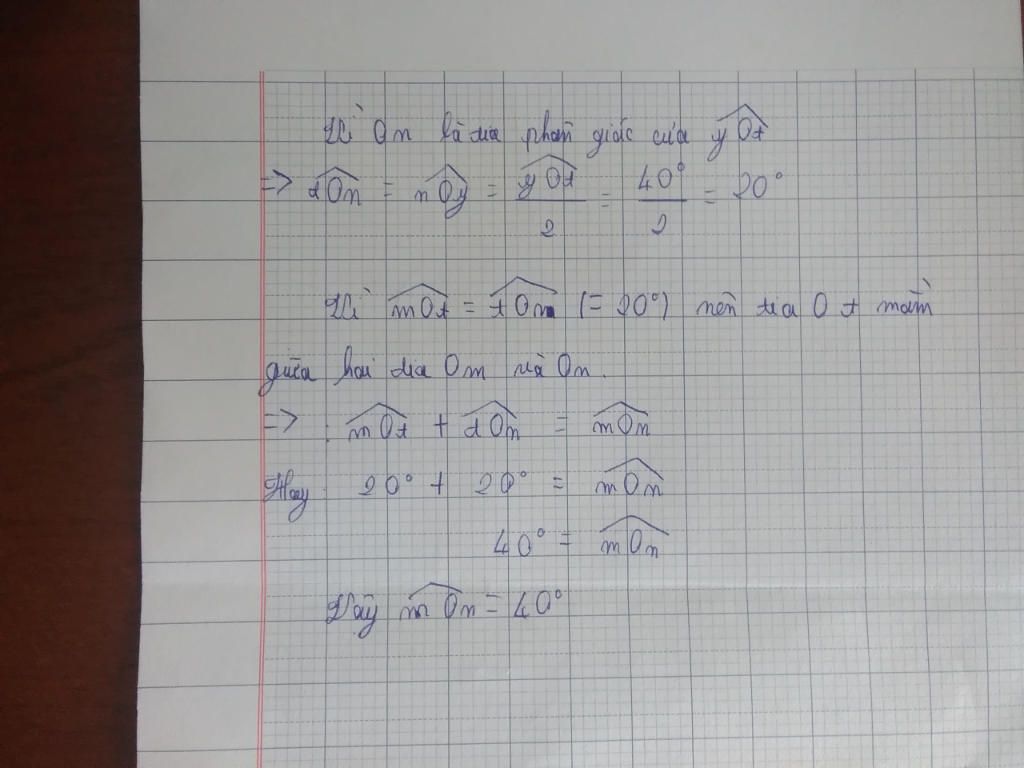 Vì On là tia phân giác của yOt
=> tOn = nOy = yOt/2 = 40°/2 = 20°
Vì mOt = tOn (= 20°) nên tia Ot nằm
giữa hai tia Om và On.
=> mOt + tOn = mOn
Hay 20° + 20° = mOn
40° = mOn
Vậy mOn = 40°